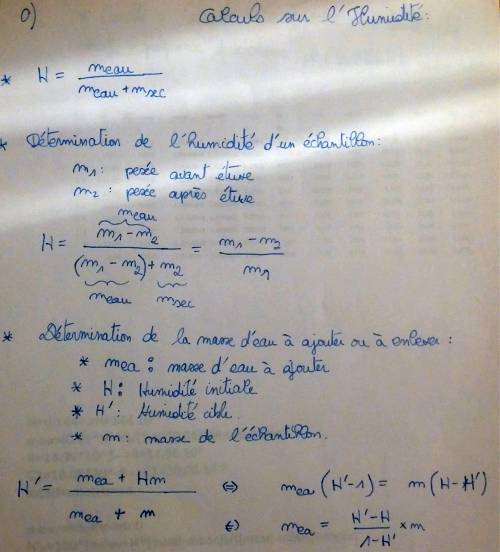 0) Calculs sur l'Humidité:
* H = meau / (meau + msec)
* Détermination de l'humidité d'un échantillon:
m1: pesée avant étuve
m2: pesée après étuve
meau
H = (m1 - m2) / ((m1 - m2) + m2) = (m1 - m2) / m1
meau msec
* Détermination de la masse d'eau à ajouter ou à enlever:
* mea: masse d'eau à ajouter
* H: Humidité initiale
* H': Humidité cible.
* m: masse de l'échantillon.
H' = (mea + Hm) / (mea + m) ⇔ mea (H'-1) = m (H-H')
⇔ mea = (H'-H) / (1-H') × m